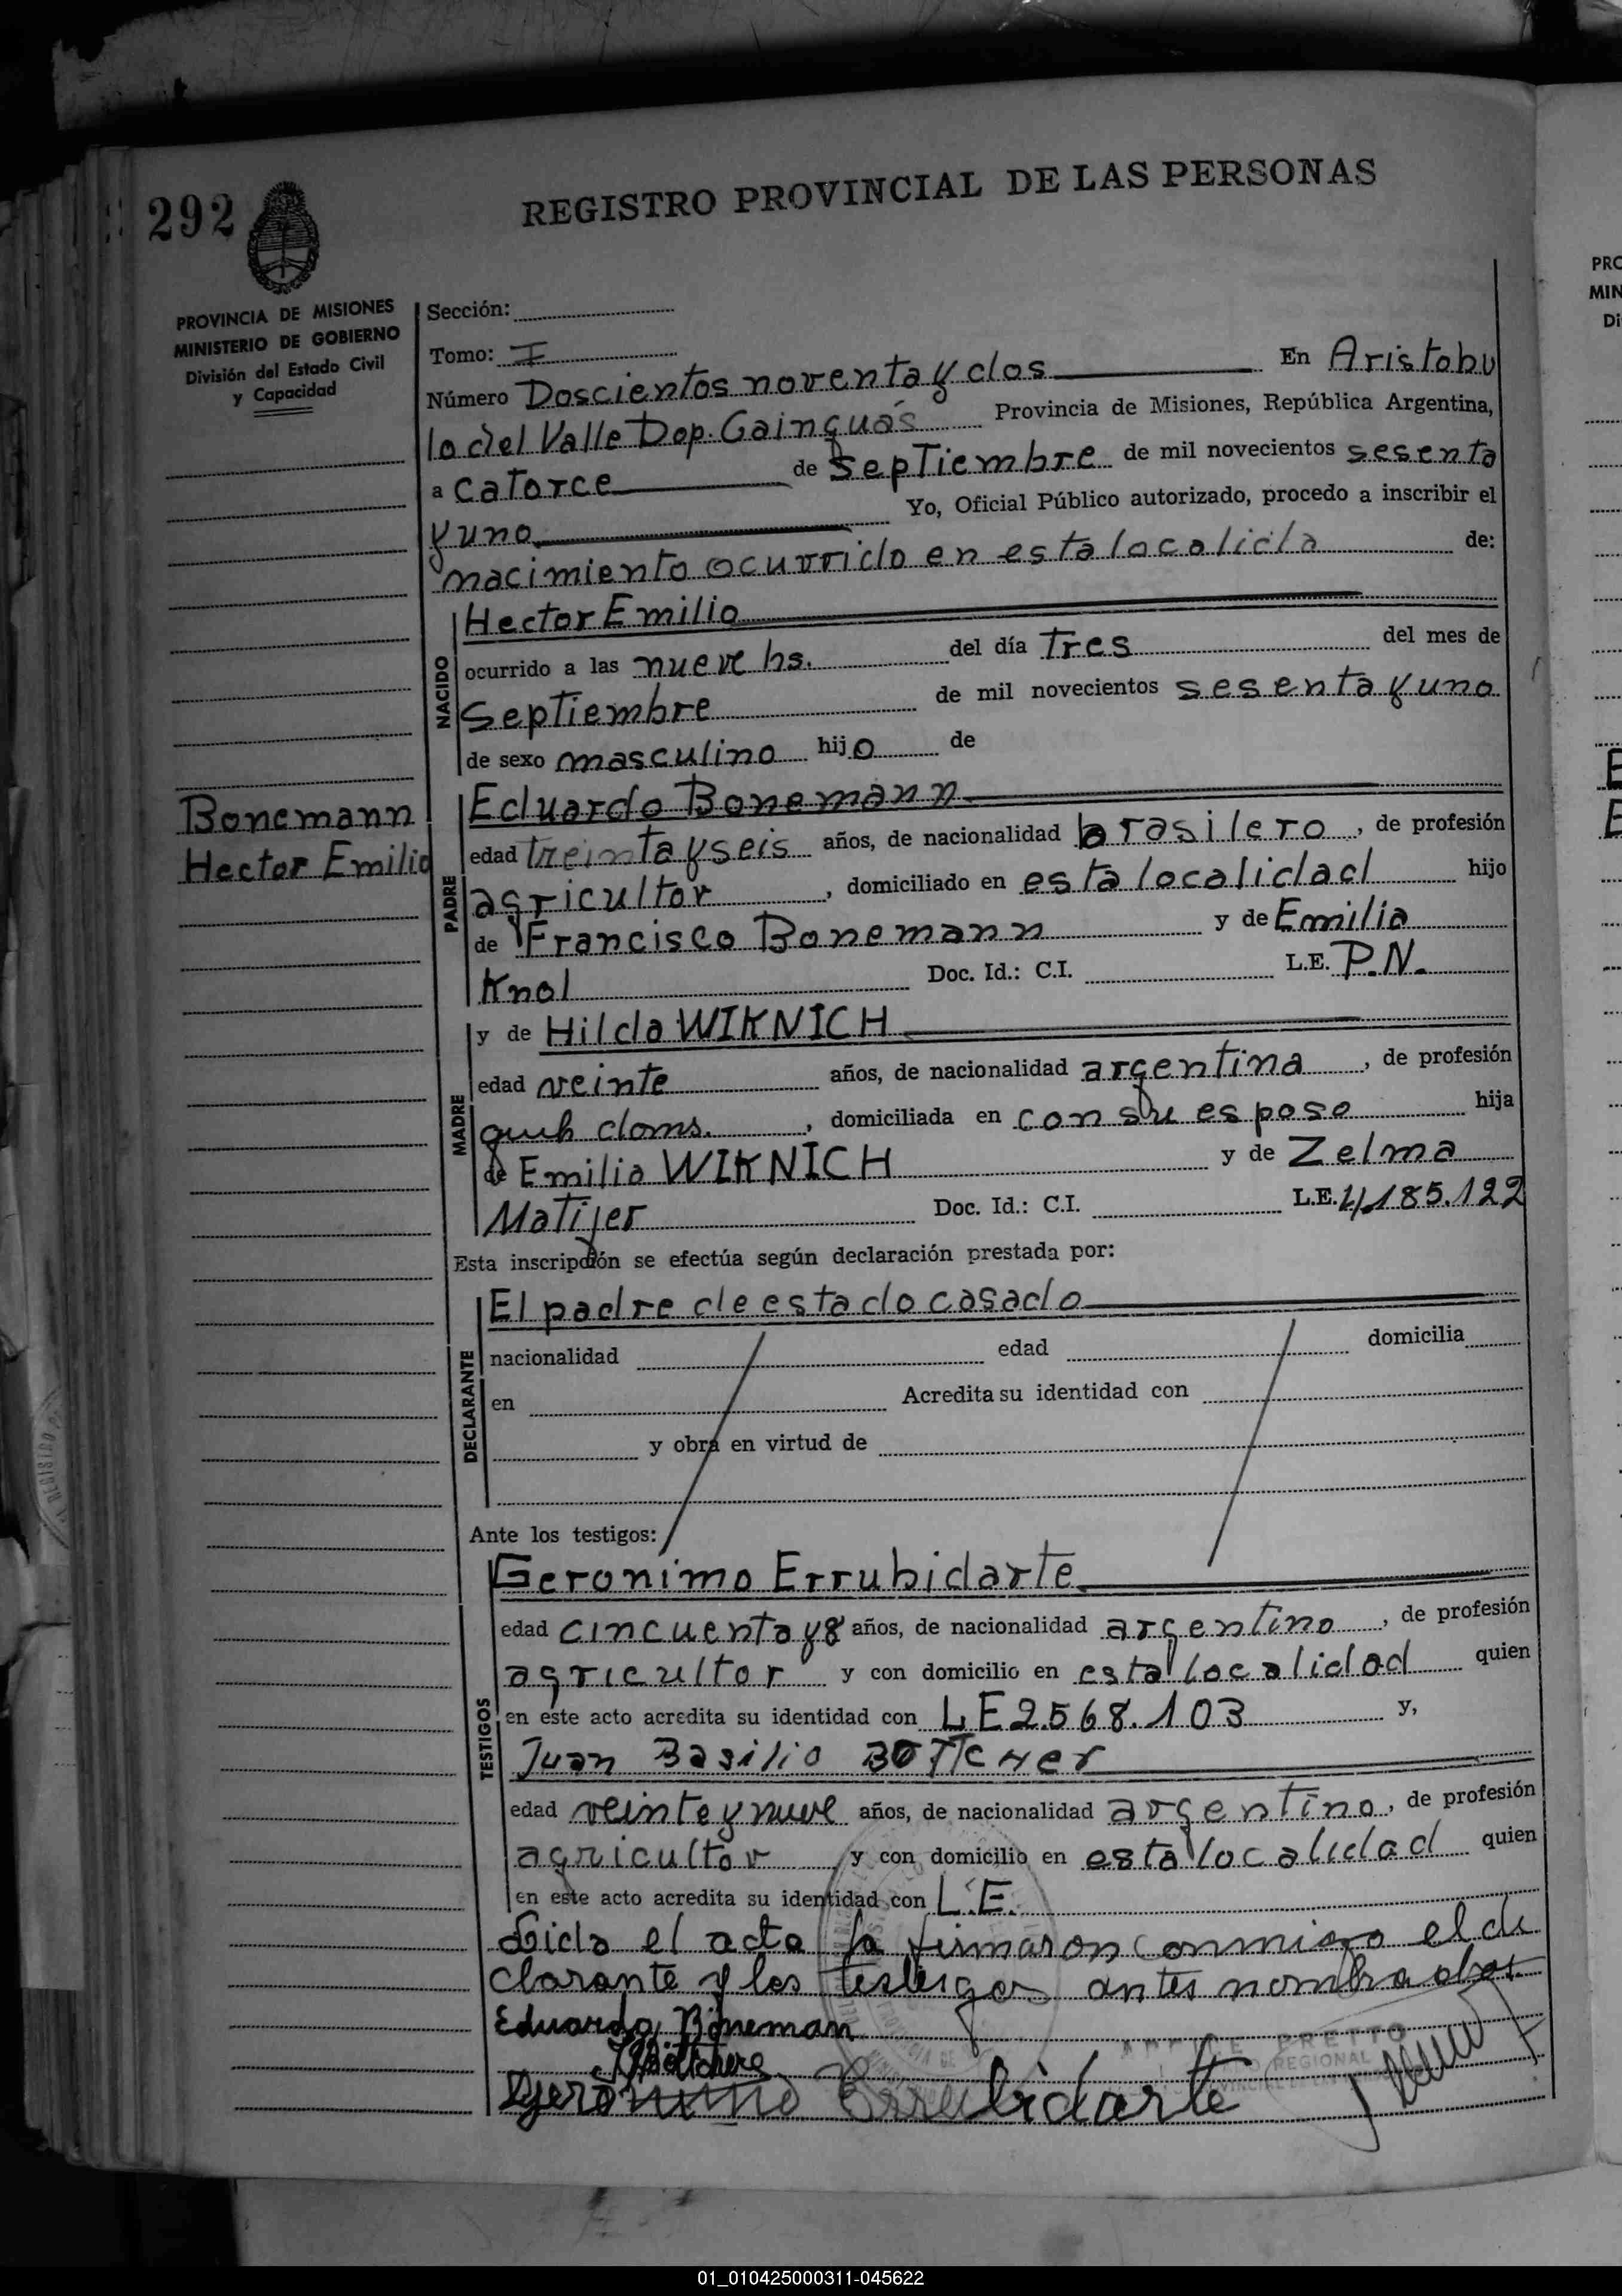 292
REGISTRO PROVINCIAL DE LAS PERSONAS
PROVINCIA DE MISIONES
MINISTERIO DE GOBIERNO
División del Estado Civil
y Capacidad
Sección:
Tomo: I
Número Doscientos noventa y dos En Aristobu
lo del Valle Dep. Cainguás Provincia de Misiones, República Argentina,
a catorce de Septiembre de mil novecientos sesenta
y uno Yo, Oficial Público autorizado, procedo a inscribir el
nacimiento ocurrido en esta localida de:
NACIDO
Hector Emilio
ocurrido a las nueve hs. del día Tres del mes de
Septiembre de mil novecientos sesenta y uno
de sexo masculino hijo de
Bonemann
Hector Emilio
PADRE
Eduardo Bonemann
edad treinta y seis años, de nacionalidad brasilero, de profesión
agricultor, domiciliado en esta localidad hijo
de Francisco Bonemann y de Emilia
Knol Doc. Id.: C.I. L.E. P.N.
MADRE
y de Hilda WIKNICH
edad veinte años, de nacionalidad argentina, de profesión
doms., domiciliada en con su esposo hija
de Emilio WIKNICH y de Zelma
Matijer Doc. Id.: C.I. L.E. 4,185.122
Esta inscripción se efectúa según declaración prestada por:
DECLARANTE
El padre de estado casado
nacionalidad edad domicilia
en Acredita su identidad con
y obra en virtud de
Ante los testigos:
TESTIGOS
Geronimo Errubidarte
edad cincuenta y 8 años, de nacionalidad argentino, de profesión
agricultor y con domicilio en esta localidad quien
en este acto acredita su identidad con LE 2.568.103 y,
Juan Basilio BOTTCHer
edad veinte y nueve años, de nacionalidad argentino, de profesión
agricultor y con domicilio en esta localidad quien
en este acto acredita su identidad con L.E.
Leida el acta la firmaron conmigo el de
clarante y los testigos antes nombrados.
Eduardo Böneman
Gerónimo Errubidarte
PRETTO
REGIONAL
PRO
MIN
Di
01_010425000311-045622